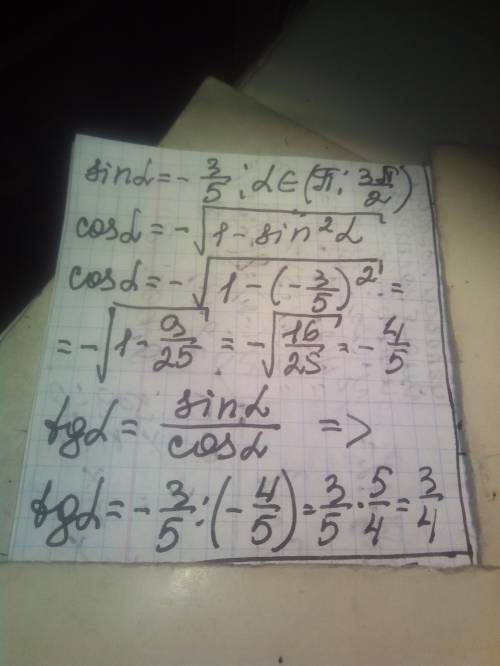 sinα = - 3/5 ; α ∈ (π; 3π/2)
cosα = -√(1 - sin²α)
cosα = -√(1 - (-3/5)²) =
= -√(1 - 9/25) = -√(16/25) = - 4/5
tgα = sinα/cosα =>
tgα = - 3/5 : (- 4/5) = 3/5 · 5/4 = 3/4